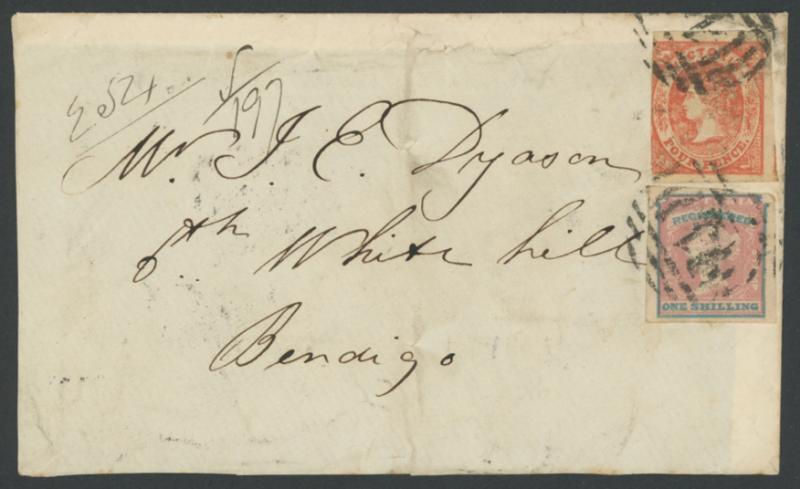 2524
5/197
VICTORIA
FOUR PENCE
Mr. J. E. Dyason
6th White hill
REGISTERED
ONE SHILLING
Bendigo